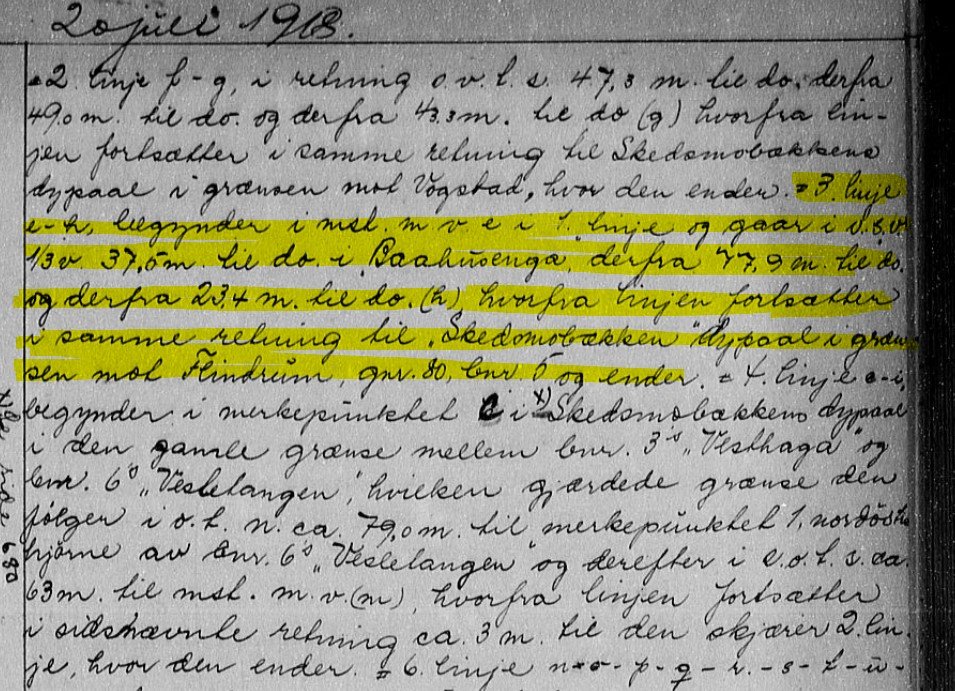 20 juli 1918.
= 2. linje f - g, i retning o.v.t.s. 47,3 m. til do. derfra
49,0 m. til do. og derfra 43,3 m. til do (g) hvorfra lin-
jen fortsætter i samme retning til Skedsmobækkens
dypaal i grænsen mot Vogstad, hvor den ender. = 3. linje
e-h, begynder i mst. m v e i 1. linje og gaar i s.s.v.
1/3 v. 37,5 m. til do. i "Baahusenga, derfra 77,9 m. til do.
og derfra 23,4 m. til do. (h), hvorfra linjen fortsætter
i samme retning til "Skedsmobækken" dypaal i græn-
sen mot Flindrum, gnr. 80, bnr. 5 og ender. = 4. linje c-i,
begynder i merkepunktet c i x) Skedsmobækkens dypaal
i den gamle grænse mellem bnr. 3's "Vesthaga" og
bnr. 6's "Vesletangen", hvilken gjærdede grænse den
følger i o.t.n. ca. 79,0 m. til merkepunktet 1, nordøstre
hjørne av bnr. 6's "Vesletangen" og derefter i s.o.t.s. ca.
63 m. til mst. m.v. (m), hvorfra linjen fortsætter
i sidstnævnte retning ca. 3 m. til den skjærer 2. lin-
je, hvor den ender. = 6. linje n - o - p - q - r. - s - t - u -
side 680